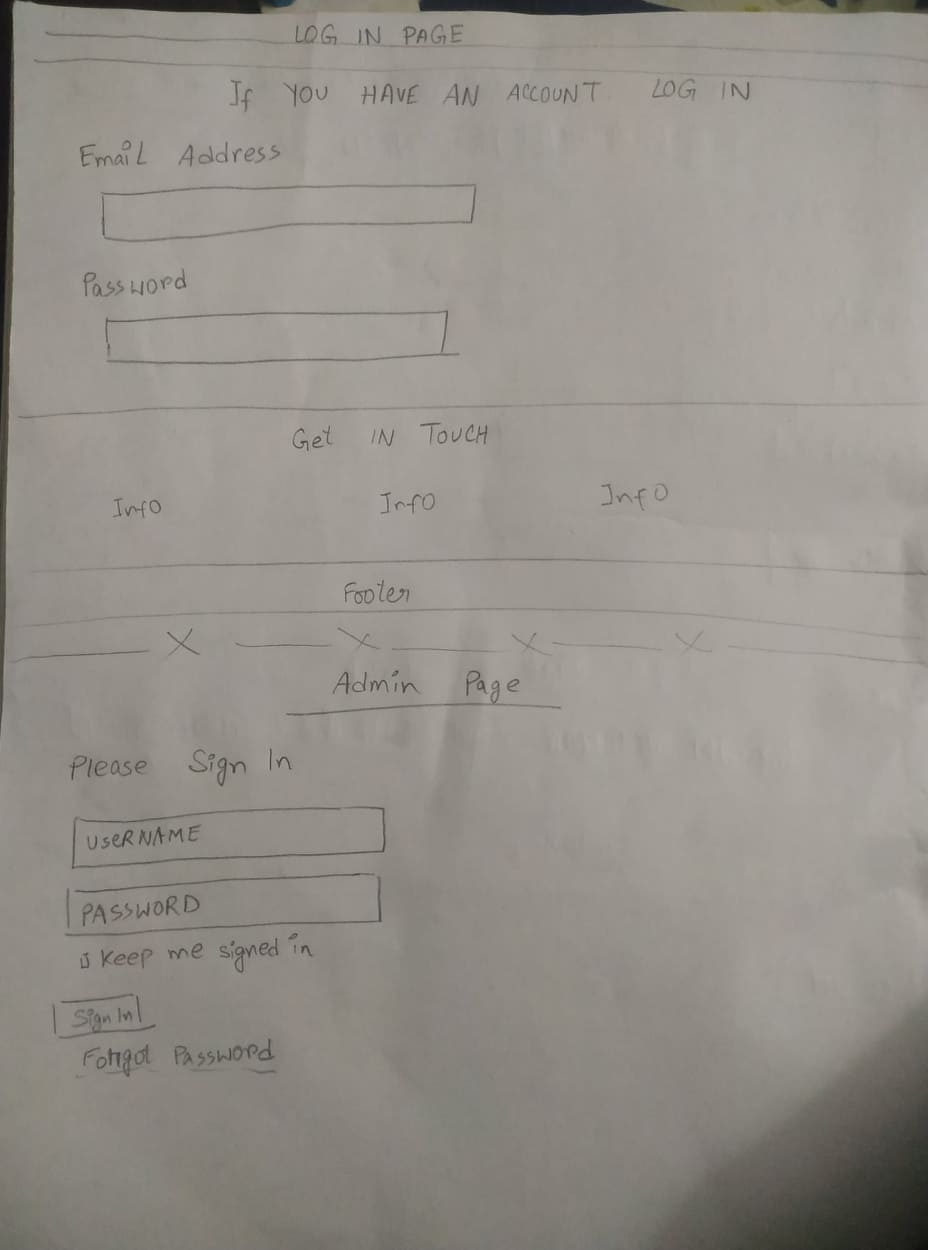 LOG IN PAGE
If YOU HAVE AN ACCOUNT LOG IN
Email Address
Password
Get IN TOUCH
Info Info Info
Footer
Admin Page
Please Sign In
UseRNAME
PASSWORD
Keep me signed in
Sign In
Forgot Password